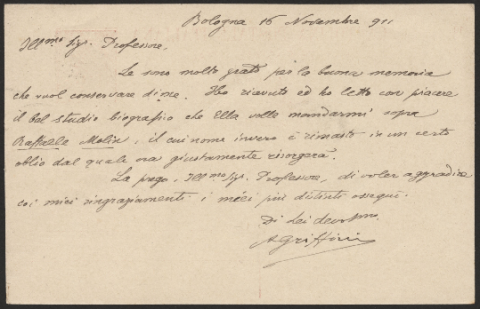 Bologna 16 Novembre 911
Ill.mo Sig. Professore,
Le sono molto grato per la buona memoria
che vuol conservare di me. Ho ricevuto ed ho letto con piacere
il bel studio biografico che Ella volle mandarmi sopra
Raffaele Molin, il cui nome invero è rimasto in un certo
oblio dal quale ora giustamente risorgerà.
La prego, Ill.mo Sig. Professore, di voler aggradire
coi miei ringraziamenti i miei più distinti ossequi.
Di Lei devot.mo
A Griffini